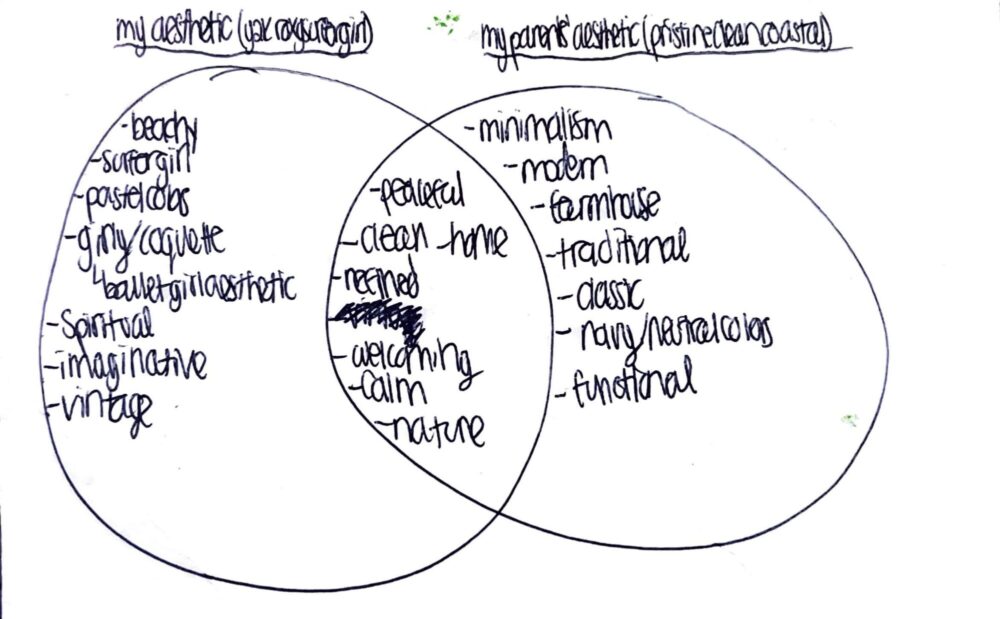 my aesthetic (y2k roxy surfer girl)
my parents' aesthetic (pristine clean coastal)
-beachy
-surfer girl
-pastel colors
-girly/coquette
↳ballet girl aesthetic
-Spiritual
-imaginative
-vintage
-peaceful
-clean -home
-refined
-welcoming
-calm
-nature
-minimalism
-modern
-farmhouse
-traditional
-classic
-navy/neutral colors
-functional